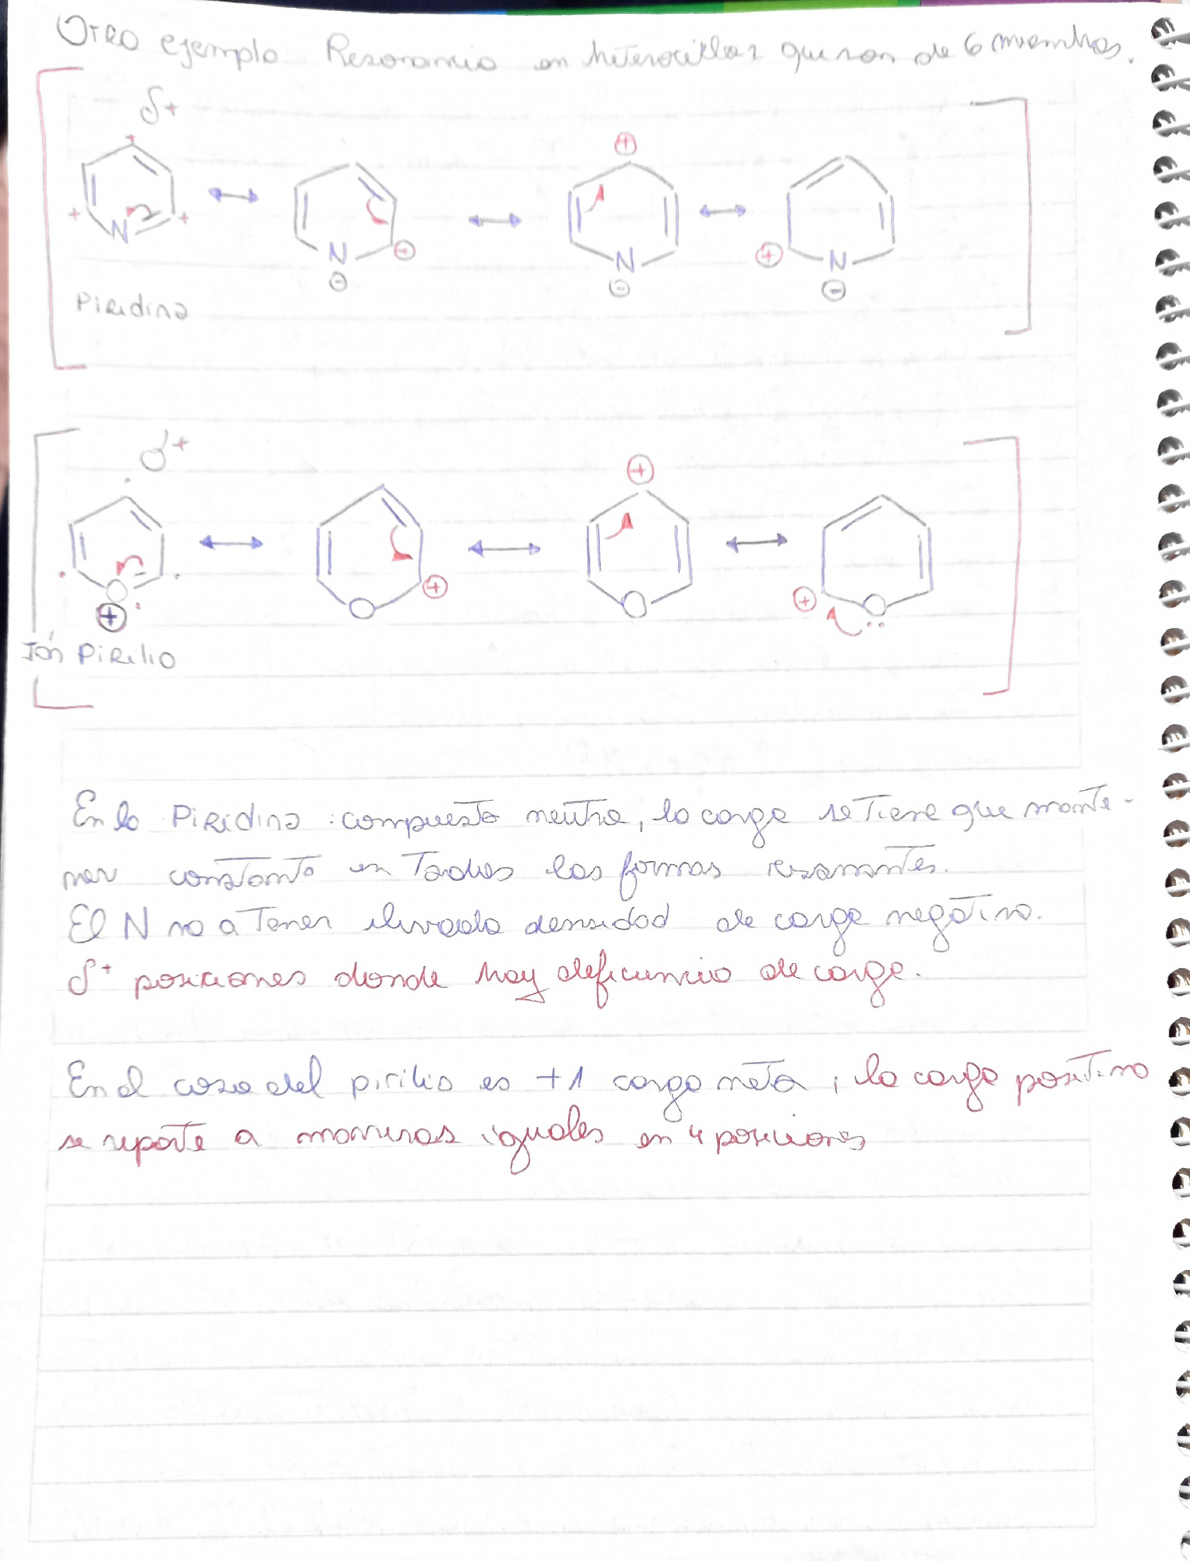 Otro ejemplo Resonancia en heterociclos que son de 6 miembros.
δ+
+
+ N +
N ⊕
⊖
⊕
N
⊖
⊕ N
⊖
Piridina
δ+
O
⊕
O ⊕
⊕
O
⊕ O
Ión Pirilio
En la Piridina: compuesto neutro, la carga se tiene que mante-
ner constante en todas las formas resonantes.
El N va a tener elevada densidad de carga negativa.
δ+ posiciones donde hay deficiencia de carga.
En el caso del pirilio es +1 carga neta, la carga positiva
se reparte a maneras iguales en 4 posiciones